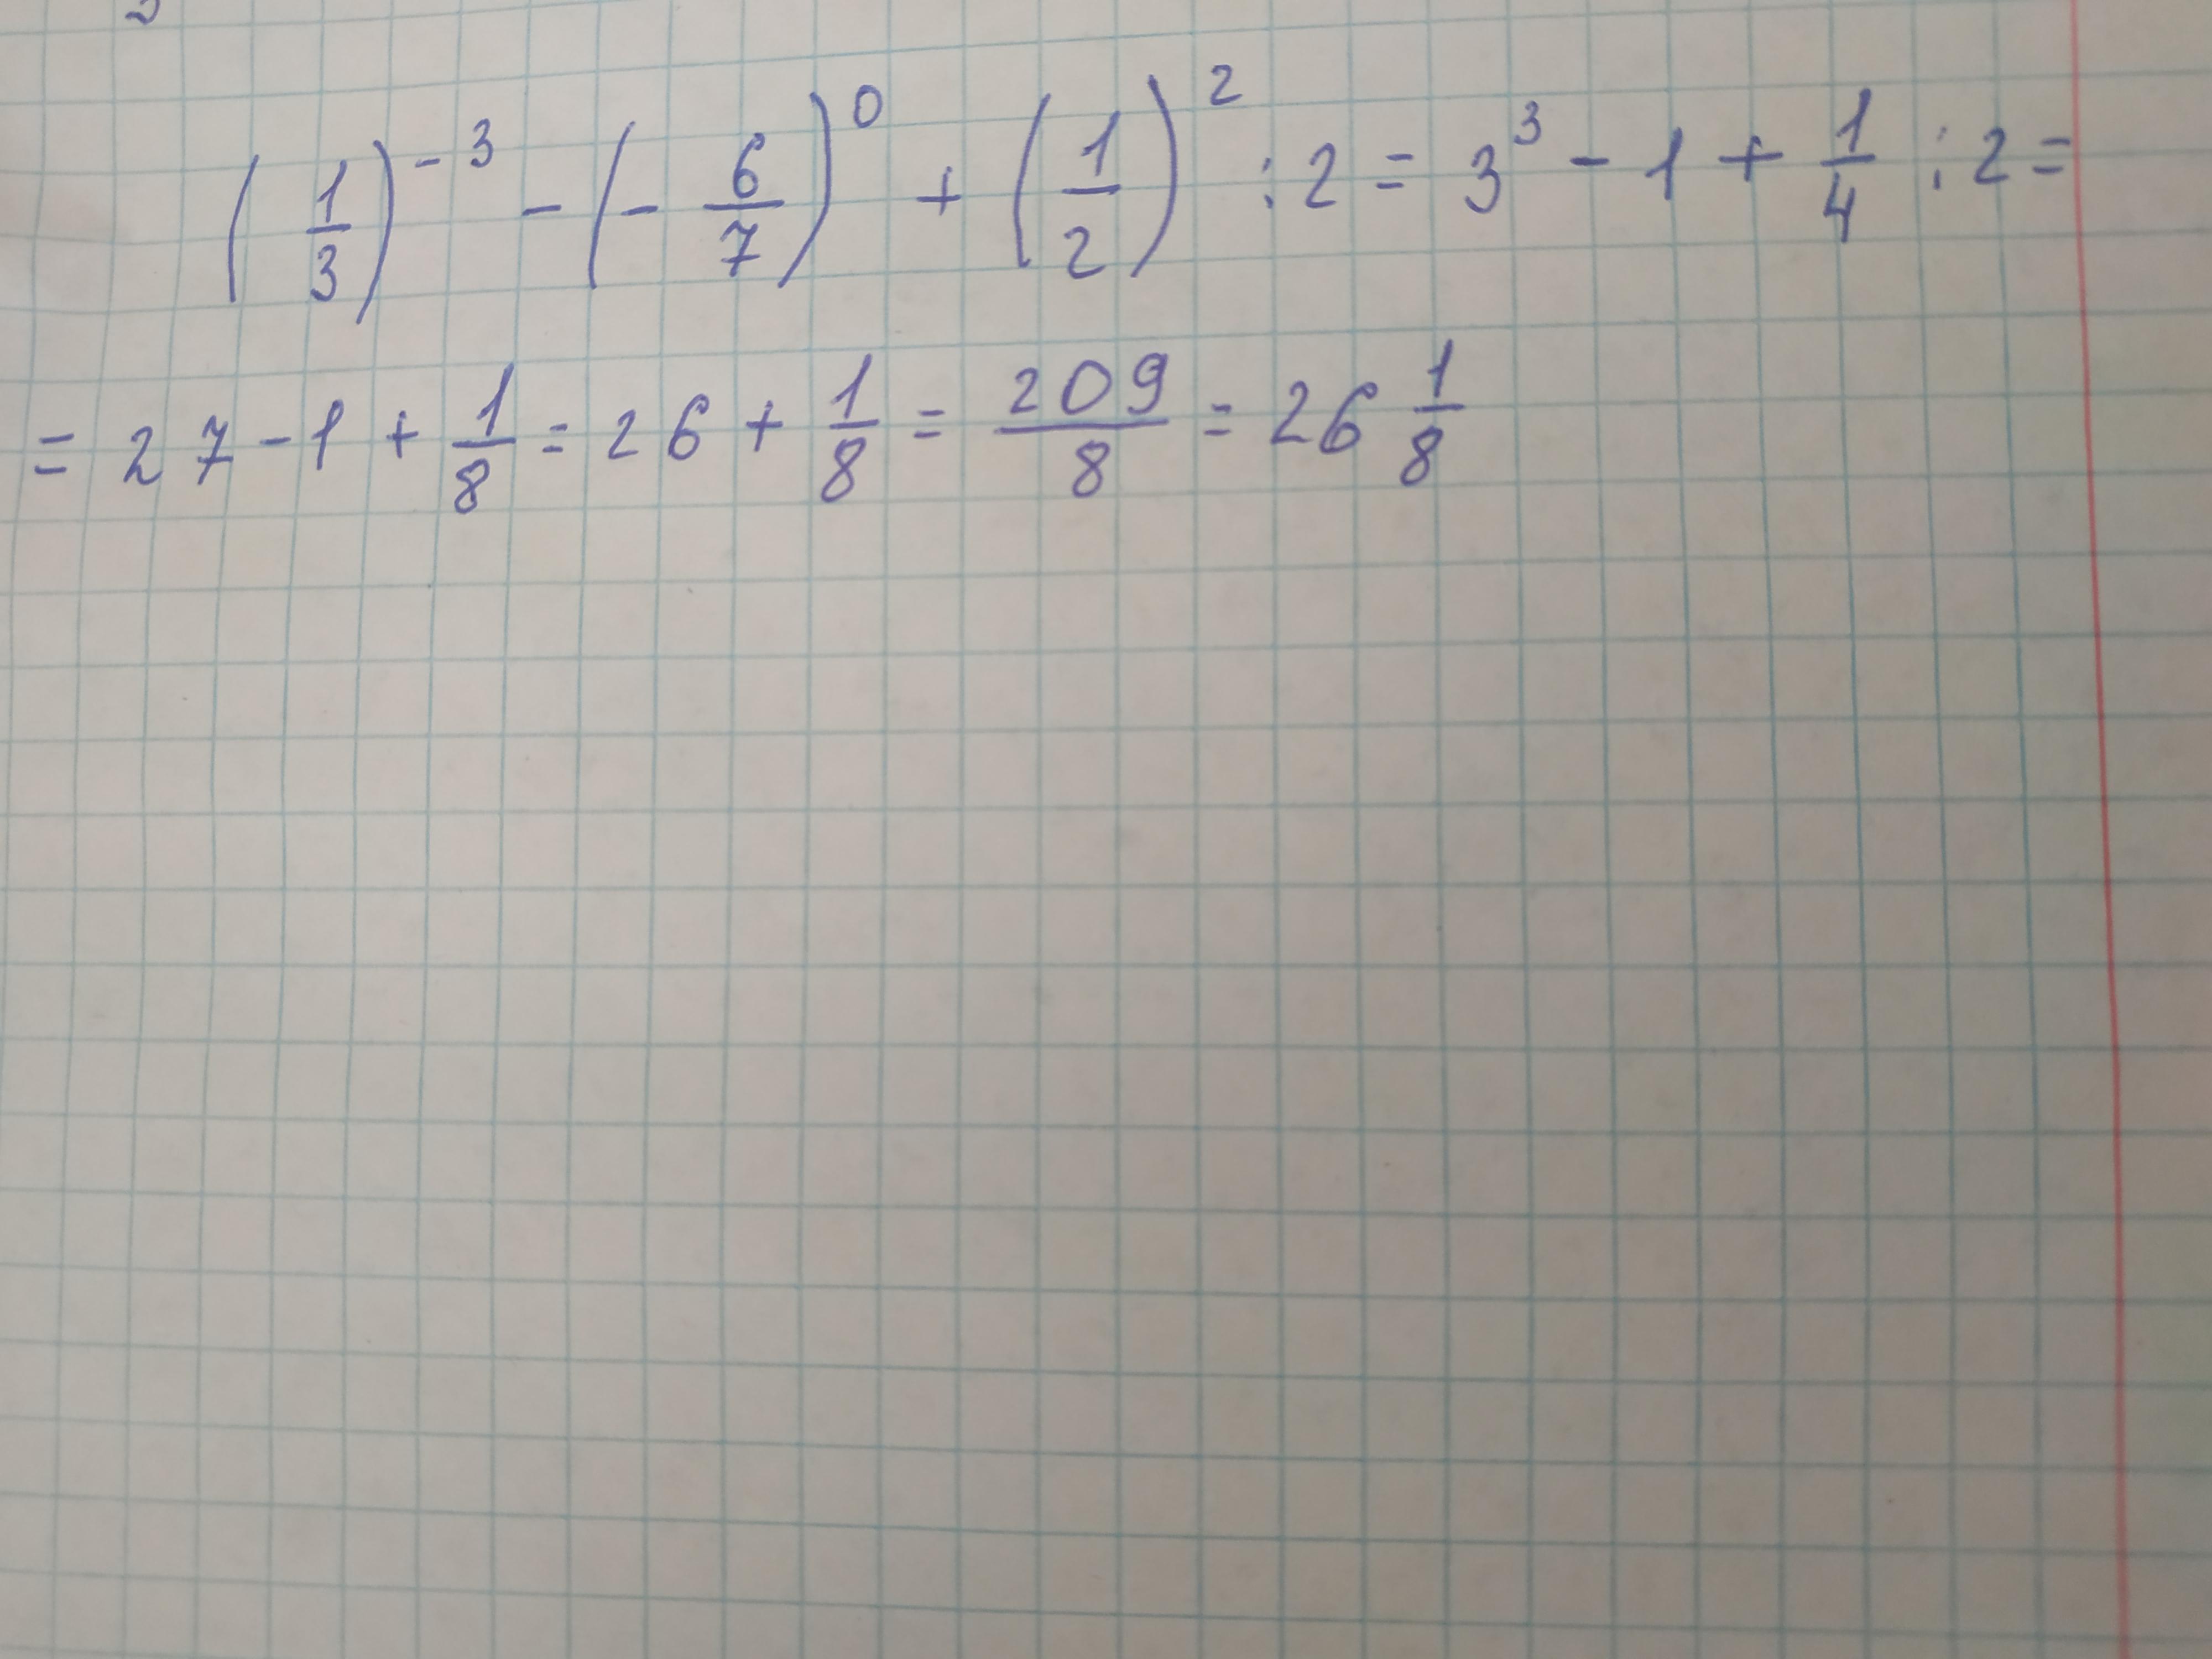 (1/3)^-3 - (- 6/7)^0 + (1/2)^2 : 2 = 3^3 - 1 + 1/4 : 2 =
= 27 - 1 + 1/8 = 26 + 1/8 = 209/8 = 26 1/8